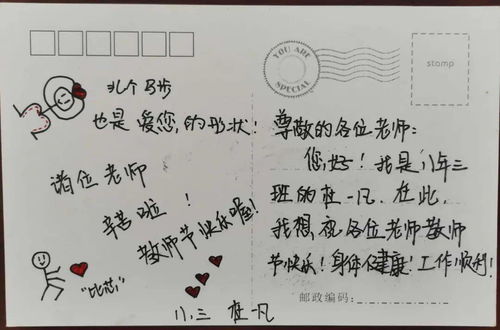 YOU ARE
SPECIAL
stamp
也是爱您的形状!
诸位老师
辛苦啦!
教师节快乐喔!
"比芯"
八.三 杜一凡
尊敬的各位老师:
您好!我是八年三
班的杜一凡,在此,
我想祝各位老师教师
节快乐!身体健康!工作顺利!
邮政编码: